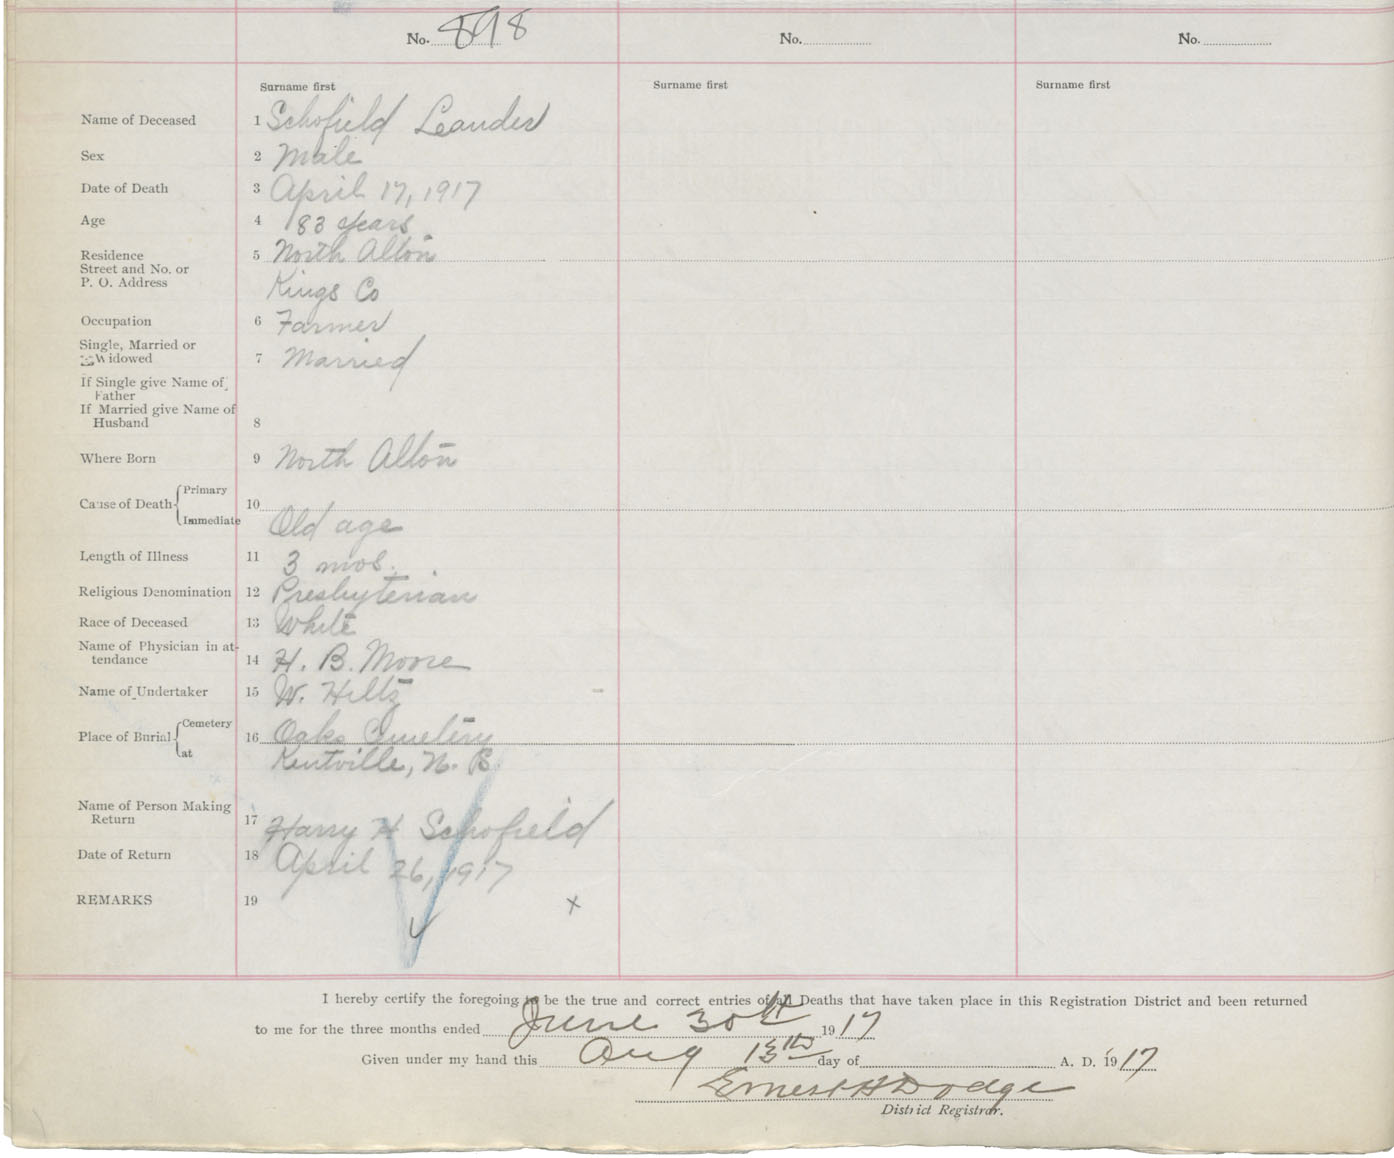 No. 898 No. No.
Surname first Surname first Surname first
Name of Deceased 1 Schofield Leander
Sex 2 Male
Date of Death 3 April 17, 1917
Age 4 83 years
Residence 5 North Alton
Street and No. or
P. O. Address Kings Co
Occupation 6 Farmer
Single, Married or
Widowed 7 Married
If Single give Name of
Father
If Married give Name of
Husband 8
Where Born 9 North Alton
Primary
Cause of Death 10
Immediate Old age
Length of Illness 11 3 mos.
Religious Denomination 12 Presbyterian
Race of Deceased 13 White
Name of Physician in at-
tendance 14 H. B. Moore
Name of Undertaker 15 W. Hiltz
Cemetery
Place of Burial 16 Oaks Cemetery
at Kentville, N. S.
Name of Person Making
Return 17 Harry H Schofield
Date of Return 18 April 26, 1917
REMARKS 19 x
I hereby certify the foregoing to be the true and correct entries of all Deaths that have taken place in this Registration District and been returned
to me for the three months ended June 30th 1917
Given under my hand this Aug 13th day of A. D. 1917
Ernest H Dodge
District Registrar.